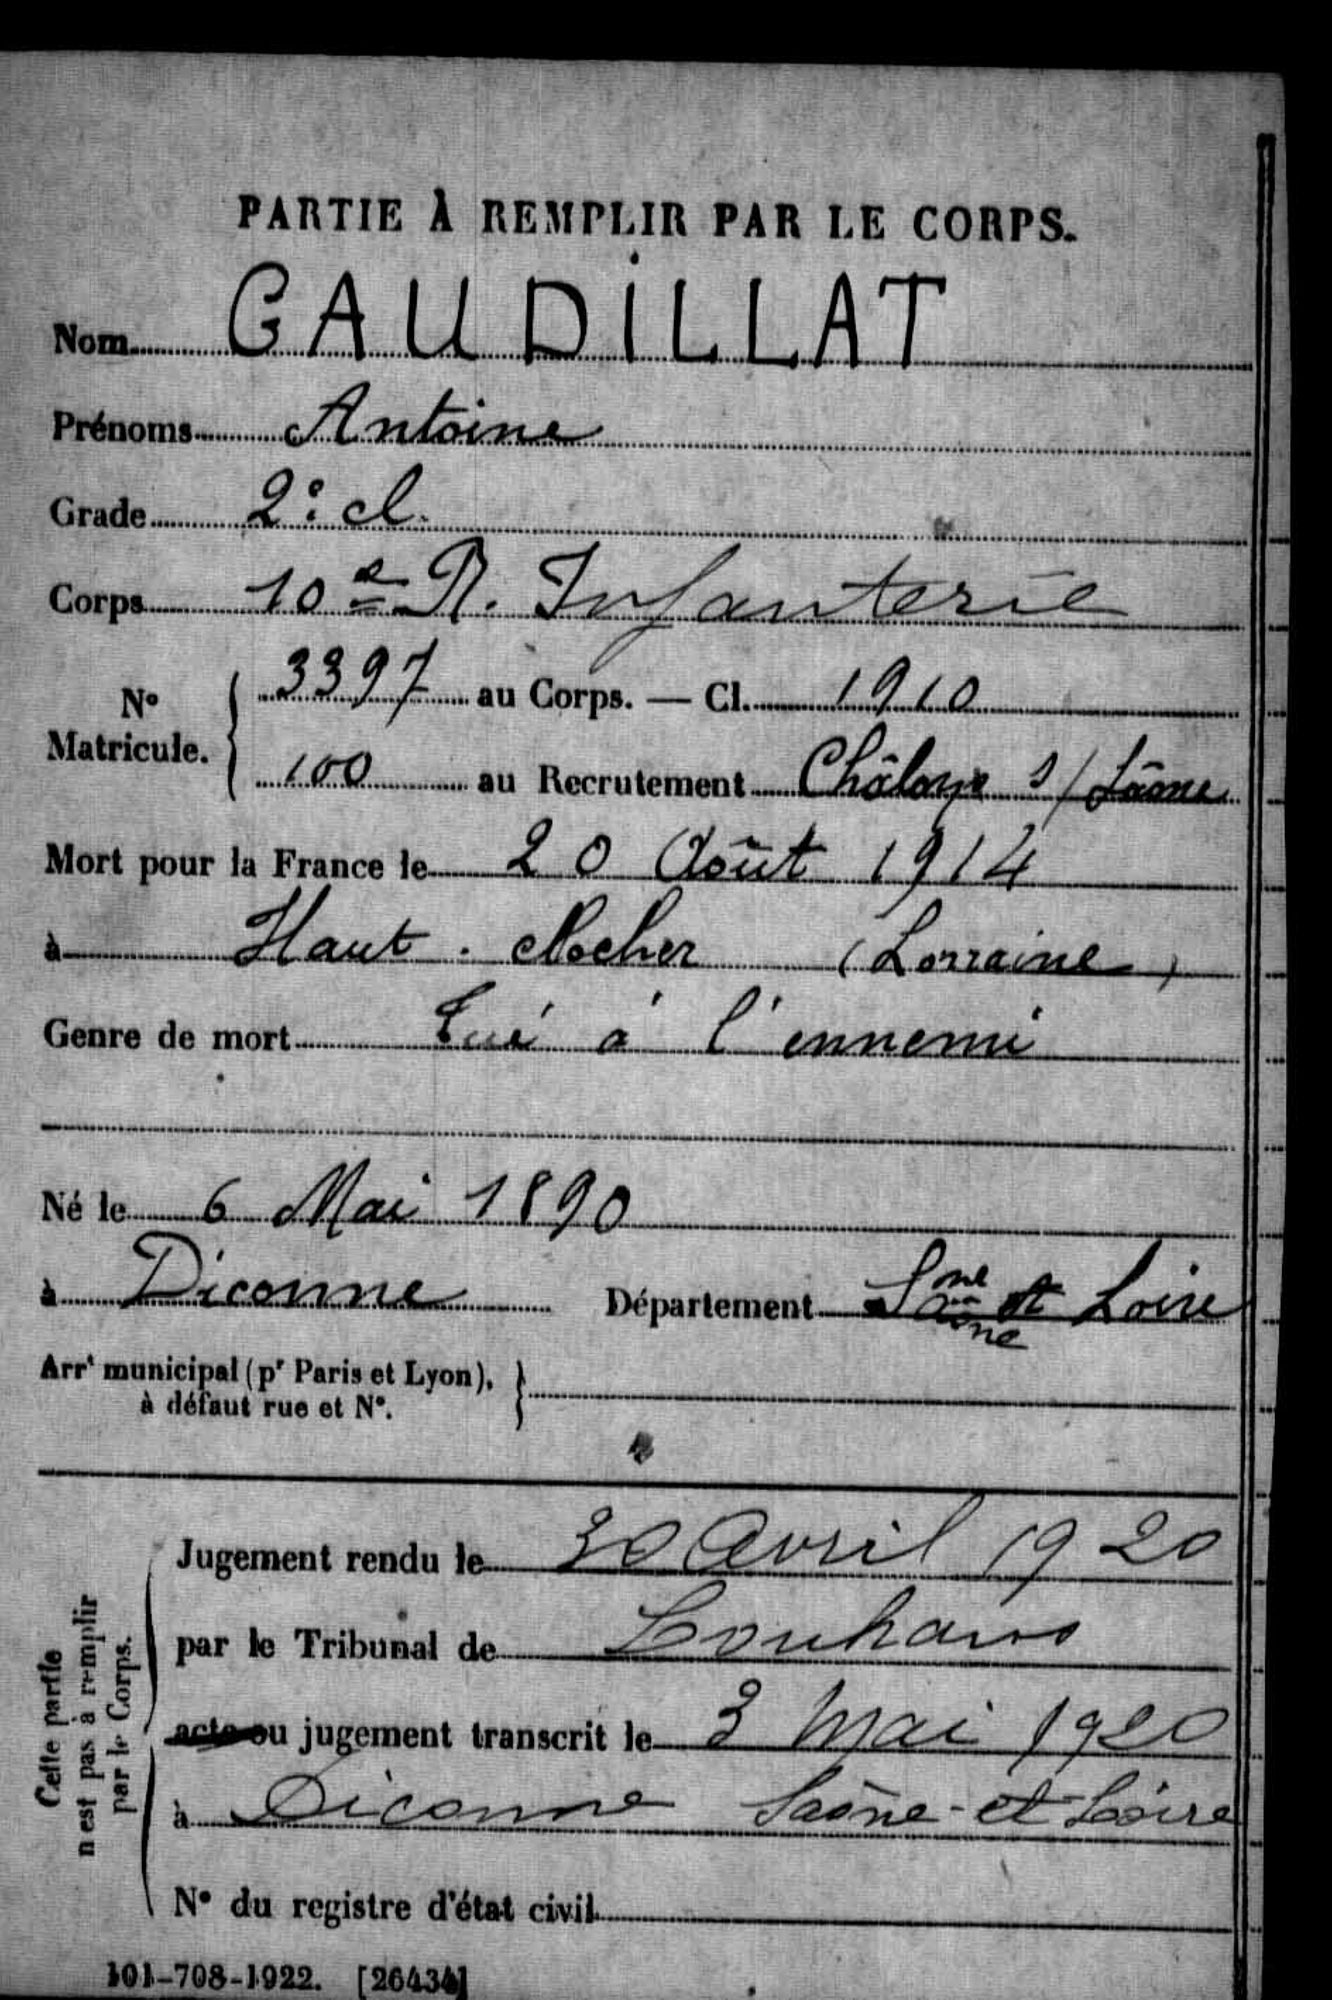 PARTIE À REMPLIR PAR LE CORPS.
Nom GAUDILLAT
Prénoms Antoine
Grade 2e cl.
Corps 10e R. Infanterie
No Matricule. { 3397 au Corps. — Cl. 1910
100 au Recrutement Châlons s/ Saône
Mort pour la France le 20 Août 1914
à Haut. Clocher (Lorraine)
Genre de mort Tué à l'ennemi
Né le 6 Mai 1890
à Diconne Département Saône et Loire
Arrt municipal (pr Paris et Lyon), }
à défaut rue et No.
Cette partie
n'est pas à remplir
par le Corps.
Jugement rendu le 30 Avril 1920
par le Tribunal de Louhans
acte ou jugement transcrit le 3 mai 1920
à Diconne Saône-et-Loire
No du registre d'état civil
101-708-1922. [26434]